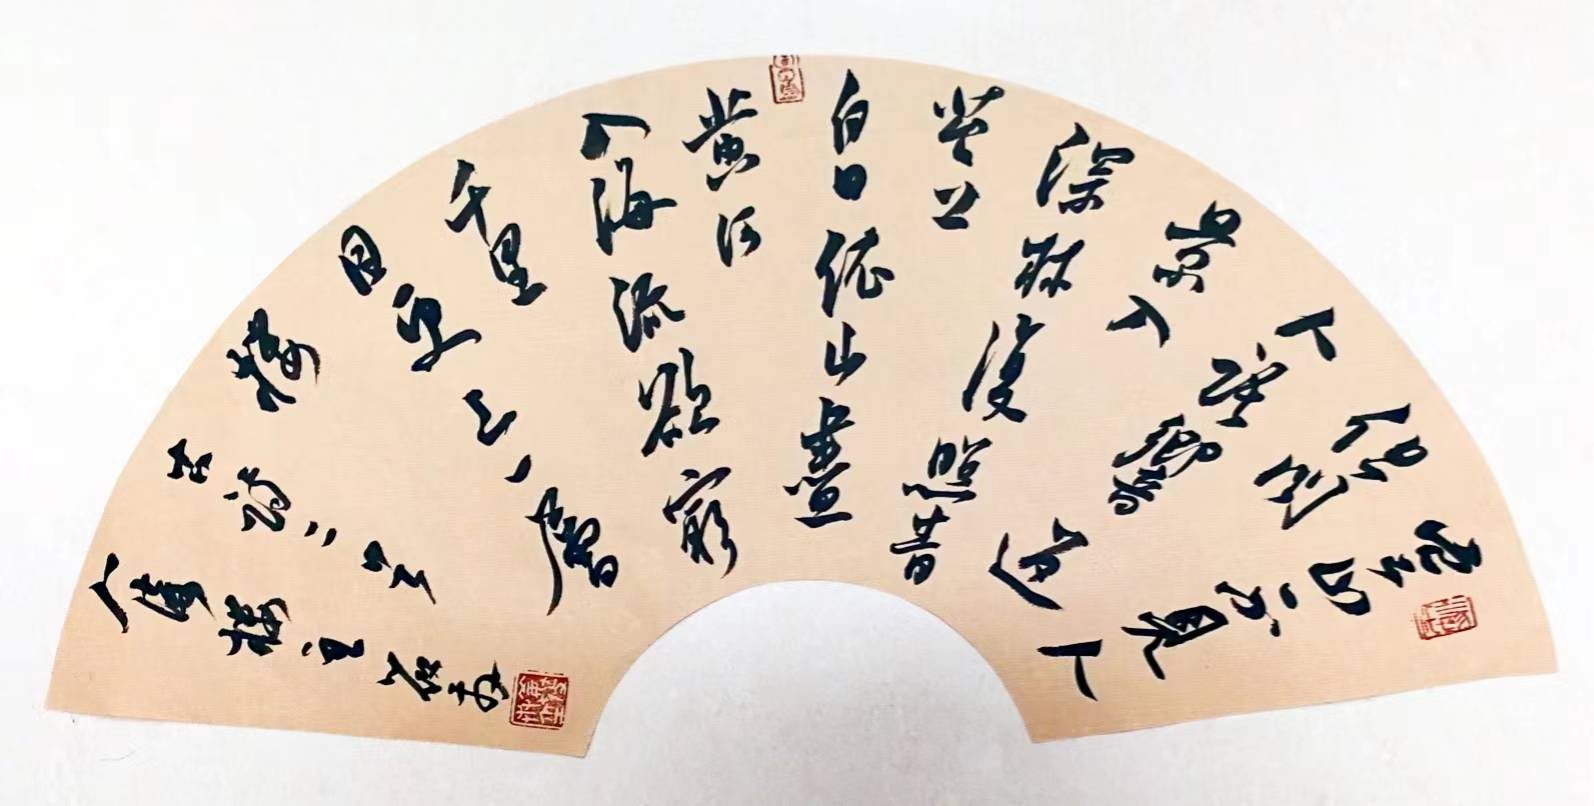 空山不見人
但聞
人語響返
景入
深林復照青
苔上
白日依山盡
黃河
入海流欲窮
千里
目更上一層
樓
古詩二首